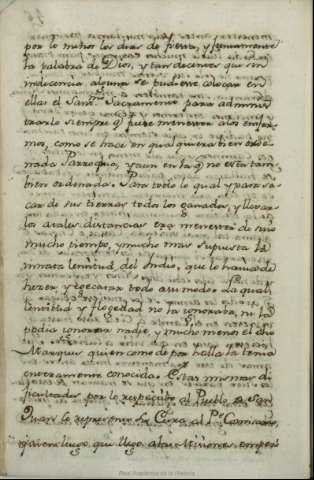 por lo menos los dias de fiesta, y juntamente
la palabra de Dios, y tan decentes que sin
indecencia alguna se pudiesse colocar en
ellas el Sant.mo Sacramento para adminis
trarlo siempre q fuese menester a los enfer
mos, como se hace en qualquiera bien orde
nada Parroquia, y aun en la q no esta tam
bien ordenada. Para todo lo qual y para sa
car de sus tierras todo los ganados, y llevar
los a tales distancias era menester de sino
mucho tiempo, y mucho mas supuesta la
innata lentitud del Indio, que lo havia de
hazer y executar todo a su modo. La qual
lentitud y flogedad no la ignoraba, ni la
podia ignorar nadie, y mucho menos el
Marques quien como de por halla la tenia
enteramente conocida. Estas mismas di
ficultades por lo respectivo al Pueblo de San
Juan le represento su Cura al P.e Comisario,
quien luego que llego a las Missiones empe
Real Academia de la Historia